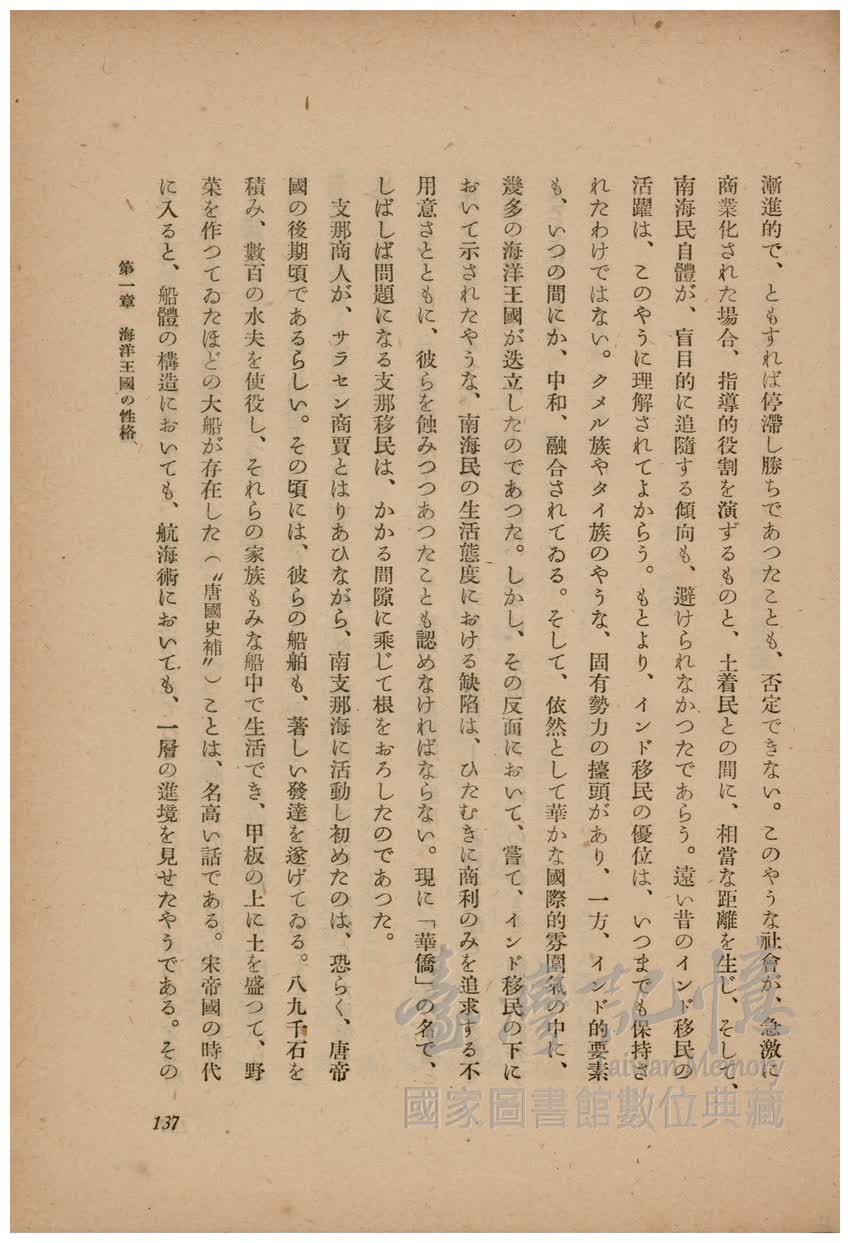 漸進的で、ともすれば停滯し勝ちであつたことも、否定できない。このやうな社會が、急激に
商業化された場合、指導的役割を演ずるものと、土着民との間に、相當な距離を生じ、そして、
南海民自體が、盲目的に追隨する傾向も、避けられなかつたであらう。遠い昔のインド移民の
活躍は、このやうに理解されてよからう。もとより、インド移民の優位は、いつまでも保持さ
れたわけではない。クメル族やタイ族のやうな、固有勢力の擡頭があり、一方、インド的要素
も、いつの間にか、中和、融合されてゐる。そして、依然として華かな國際的雰圍氣の中に、
幾多の海洋王國が迭立したのであつた。しかし、その反面において、嘗て、インド移民の下に
おいて示されたやうな、南海民の生活態度における缺陷は、ひたむきに商利のみを追求する不
用意さとともに、彼らを蝕みつつあつたことも認めなければならない。現に「華僑」の名で、
しばしば問題になる支那移民は、かかる間隙に乘じて根をおろしたのであつた。
支那商人が、サラセン商賈とはりあひながら、南支那海に活動し初めたのは、恐らく、唐帝
國の後期頃であるらしい。その頃には、彼らの船舶も、著しい發達を遂げてゐる。八九千石を
積み、數百の水夫を使役し、それらの家族もみな船中で生活でき、甲板の上に土を盛つて、野
菜を作つてゐたほどの大船が存在した（〝唐國史補〟）ことは、名高い話である。宋帝國の時代
に入ると、船體の構造においても、航海術においても、一層の進境を見せたやうである。その
第一章　海洋王國の性格
137
臺灣記憶
Taiwan Memory
國家圖書館數位典藏